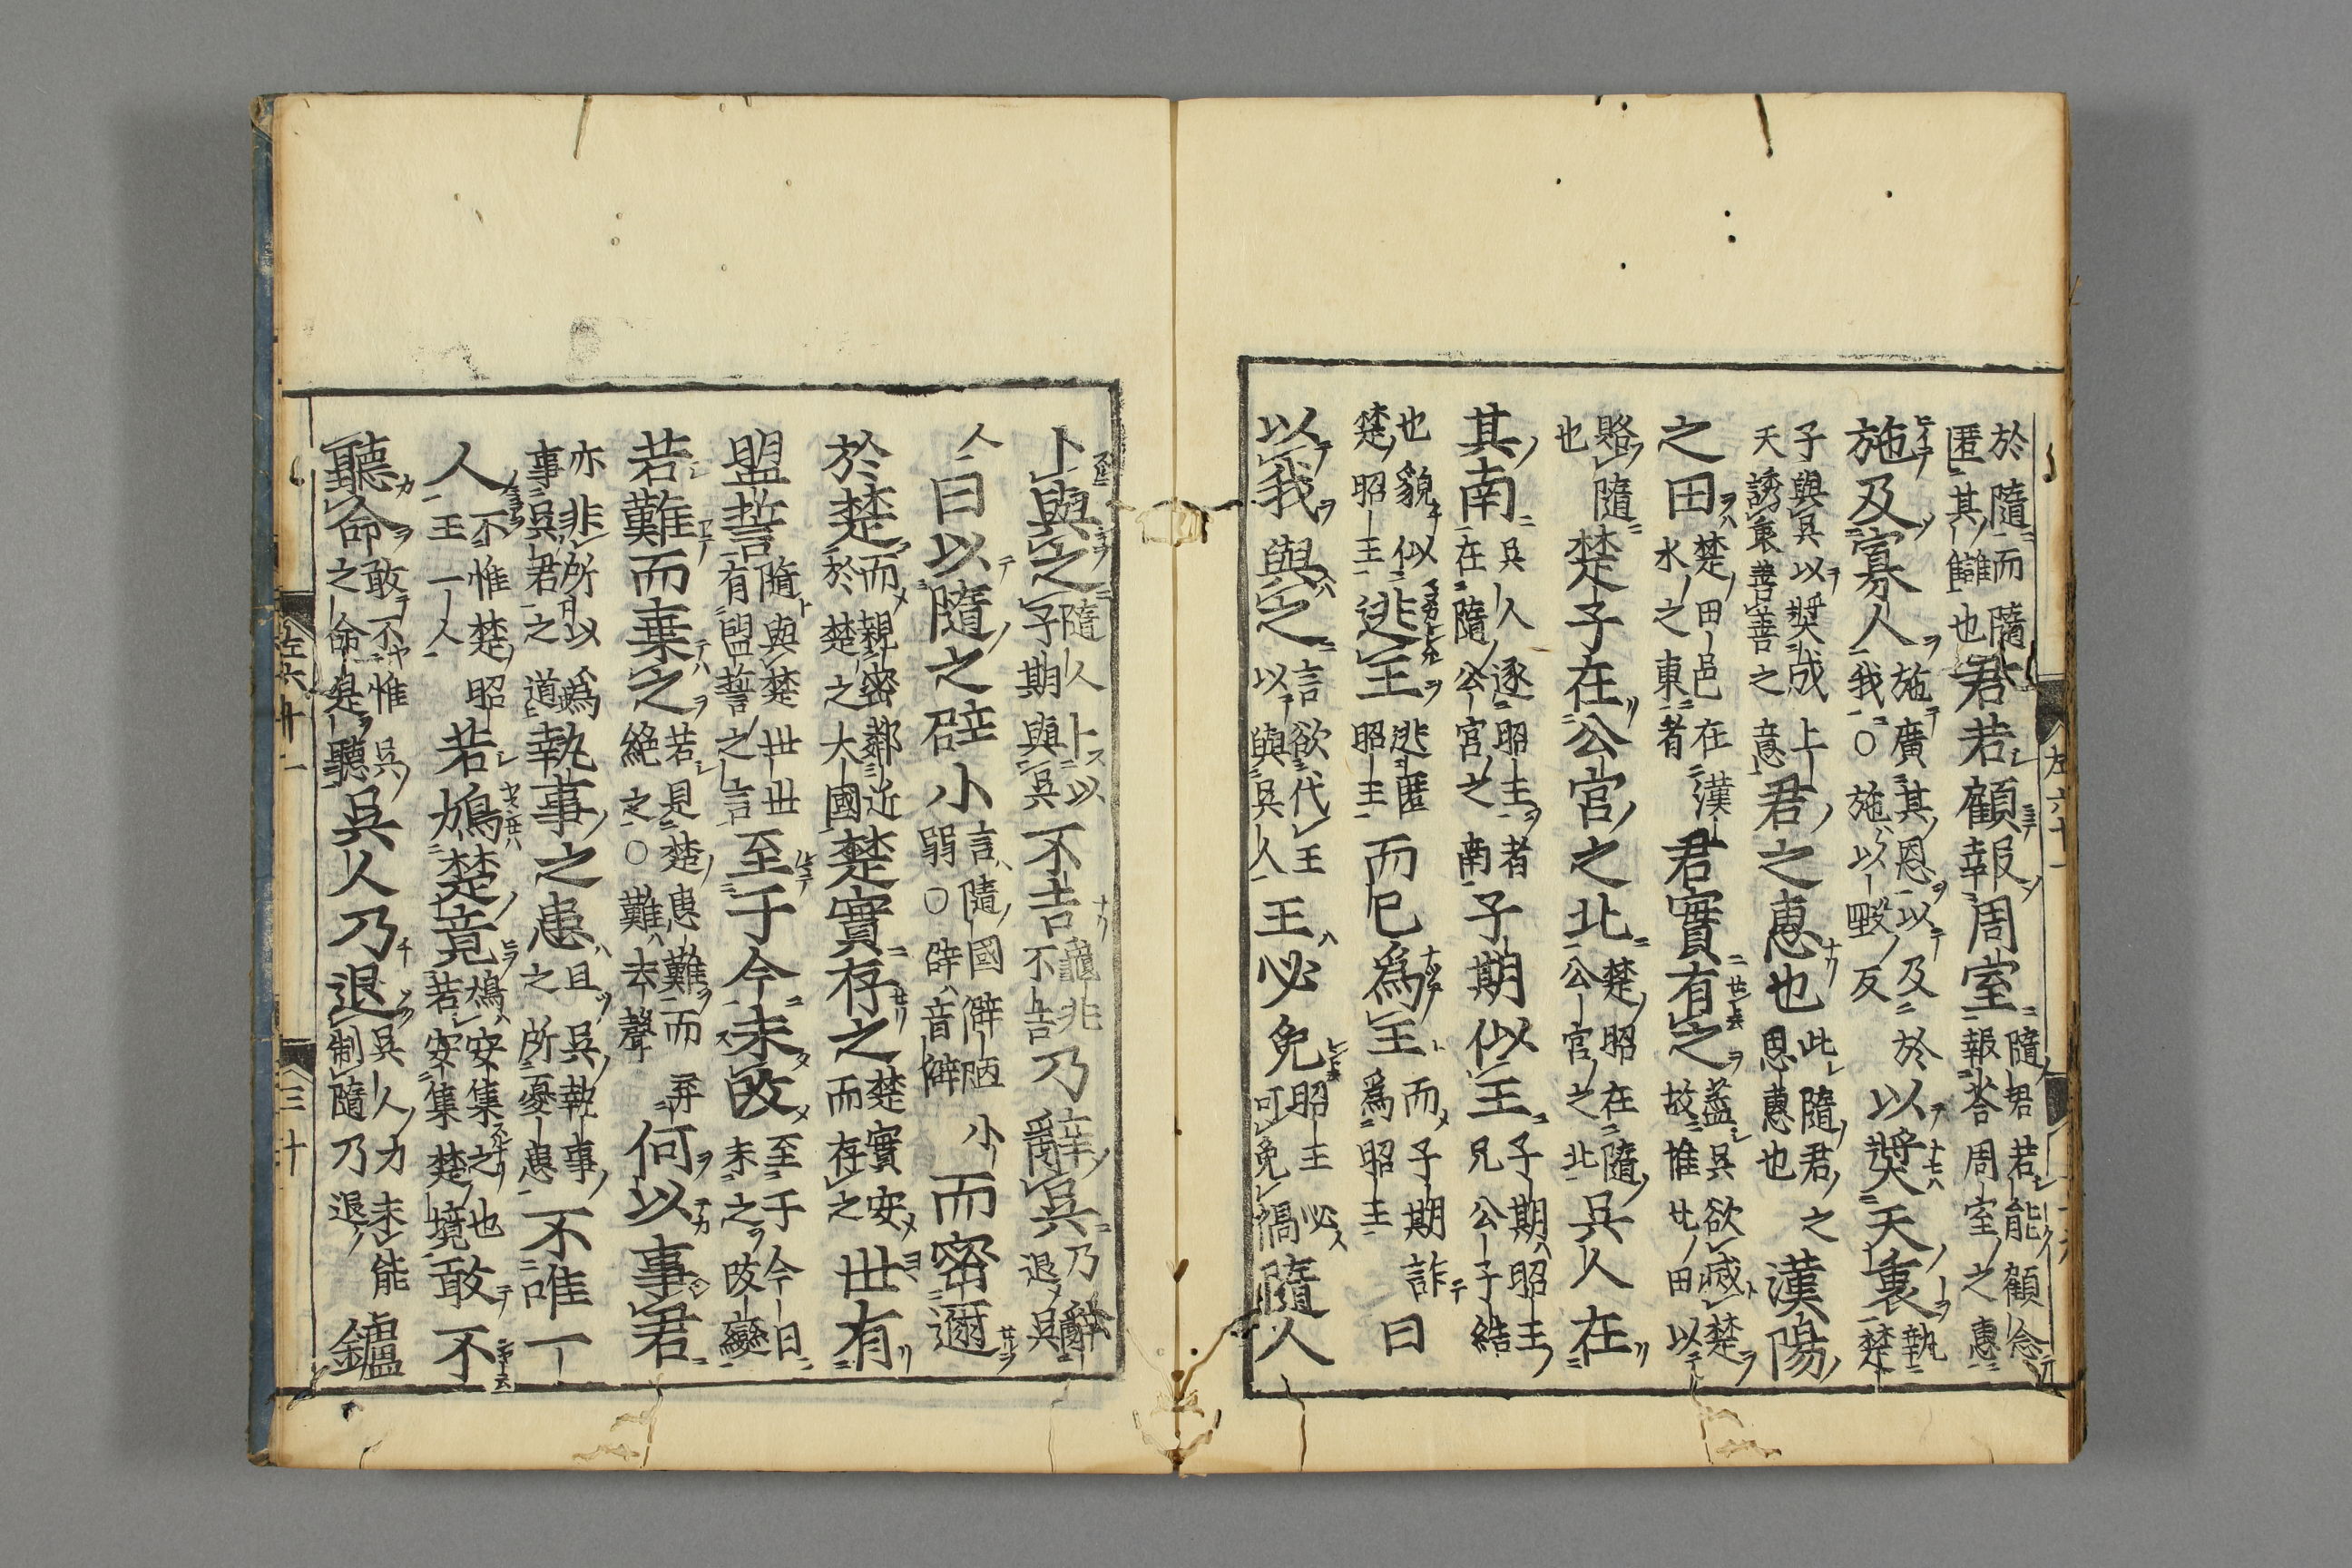 於隨而隨匿其讎也君若顧報周室隨君若能顧念報荅周室之惠
施及寡人施廣其恩以及於我〇施以豉反以奬天衷執楚
子與吳以奬成上天誘衷善善之意君之惠也此隨君之恩惠也漢陽
之田楚田邑在漢水之東者君實有之蓋吳欲滅楚故惟此田以
賂隨也楚子在公宮之北楚昭在隨公宮之北吳人在
其南吳人逐昭王者在隨公宮之南子期似王子期昭王兄公子結
也貌似楚昭王逃王逃匿昭王而已爲王而子期爲昭王詐曰
以我與之言欲代王以與吳人王必免昭王必可免禍隨人
卜與之隨人卜以子期與吳不吉龜兆不吉乃辭吳乃辭退吳
人曰以隨之辟小言隨國僻陋小弱〇辟音僻而密邇
於楚而親密鄰近於楚之大國楚實存之楚實安而存之世有
盟誓隨與楚世世有盟誓之言至于今未改至于今日未之改變
若難而棄之若見楚患難而弃絶之〇難去聲何以事君
亦非所以爲事吳君之道執事之患且吳執事之所憂患不唯一
人不惟楚昭王一人若鳩楚竟鳩安集之也若安集楚境敢不
聽命敢不惟吳之命是聽吳人乃退吳人力未能制隨乃退鑪
左六十一
左六十一
三十